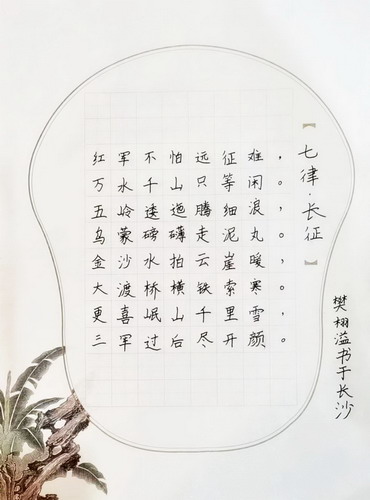 【七律·长征】
红军不怕远征难，
万水千山只等闲。
五岭逶迤腾细浪，
乌蒙磅礴走泥丸。
金沙水拍云崖暖，
大渡桥横铁索寒。
更喜岷山千里雪，
三军过后尽开颜。
樊栩溢书于长沙